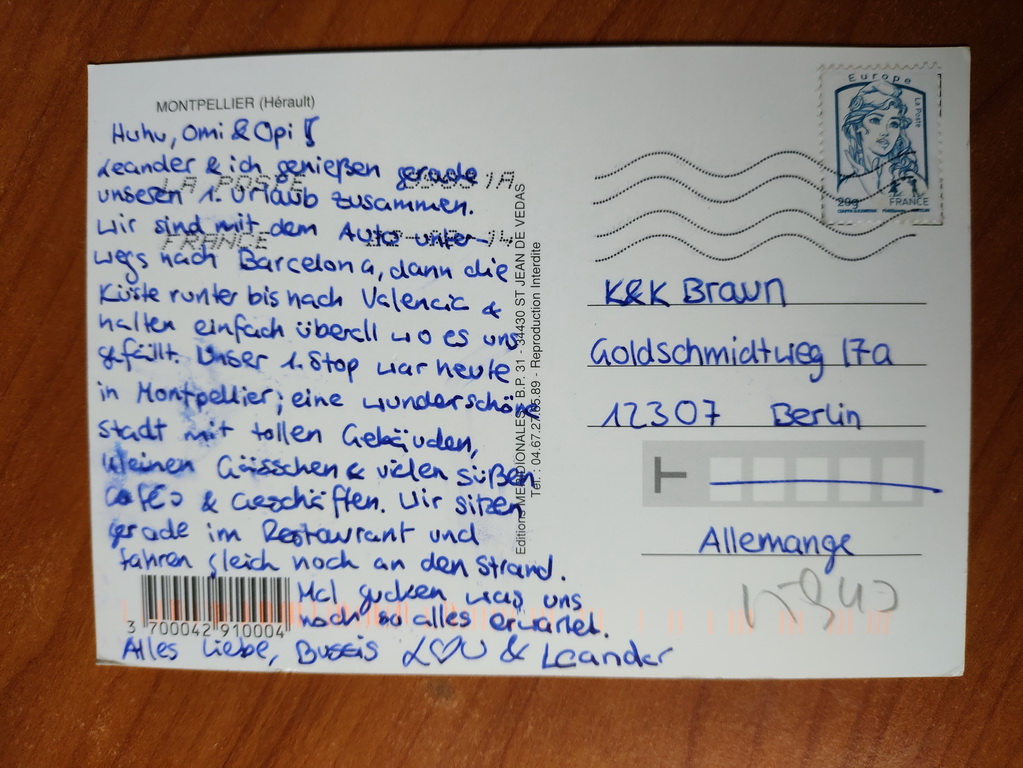 MONTPELLIER (Hérault)
Huhu, Omi & Opi!
Leander & ich genießen gerade
unseren 1. Urlaub zusammen.
Wir sind mit dem Auto unter-
wegs nach Barcelona, dann die
Küste runter bis nach Valencia &
halten einfach überall wo es uns
gefällt. Unser 1. Stop war heute
in Montpellier; eine wunderschöne
Stadt mit tollen Gebäuden,
kleinen Gässchen & vielen süßen
Cafés & Geschäften. Wir sitzen
gerade im Restaurant und
fahren gleich noch an den Strand.
Mal gucken was uns
noch so alles erwartet.
Alles Liebe, Bussis L♡U & Leander
3 700042 910004
LA POSTE
FRANCE
Editions MERIDIONALES - B.P. 31 - 34430 ST JEAN DE VEDAS
Tél. : 04.67.27.65.89 - Reproduction Interdite
Europe
La Poste
20g
FRANCE
K&K Braun
Goldschmidtweg 17a
12307 Berlin
T
Allemange